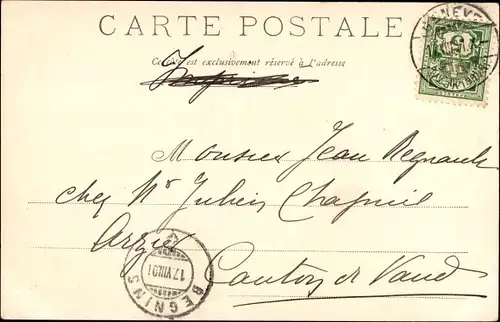 CARTE POSTALE
Ce côté est exclusivement réservé à l'adresse
Imprimé
Monsieur Jean Regnault
chez Mr Julien Chapuis
Arzier
Canton de Vaud
17.VII.01
BEGNINS